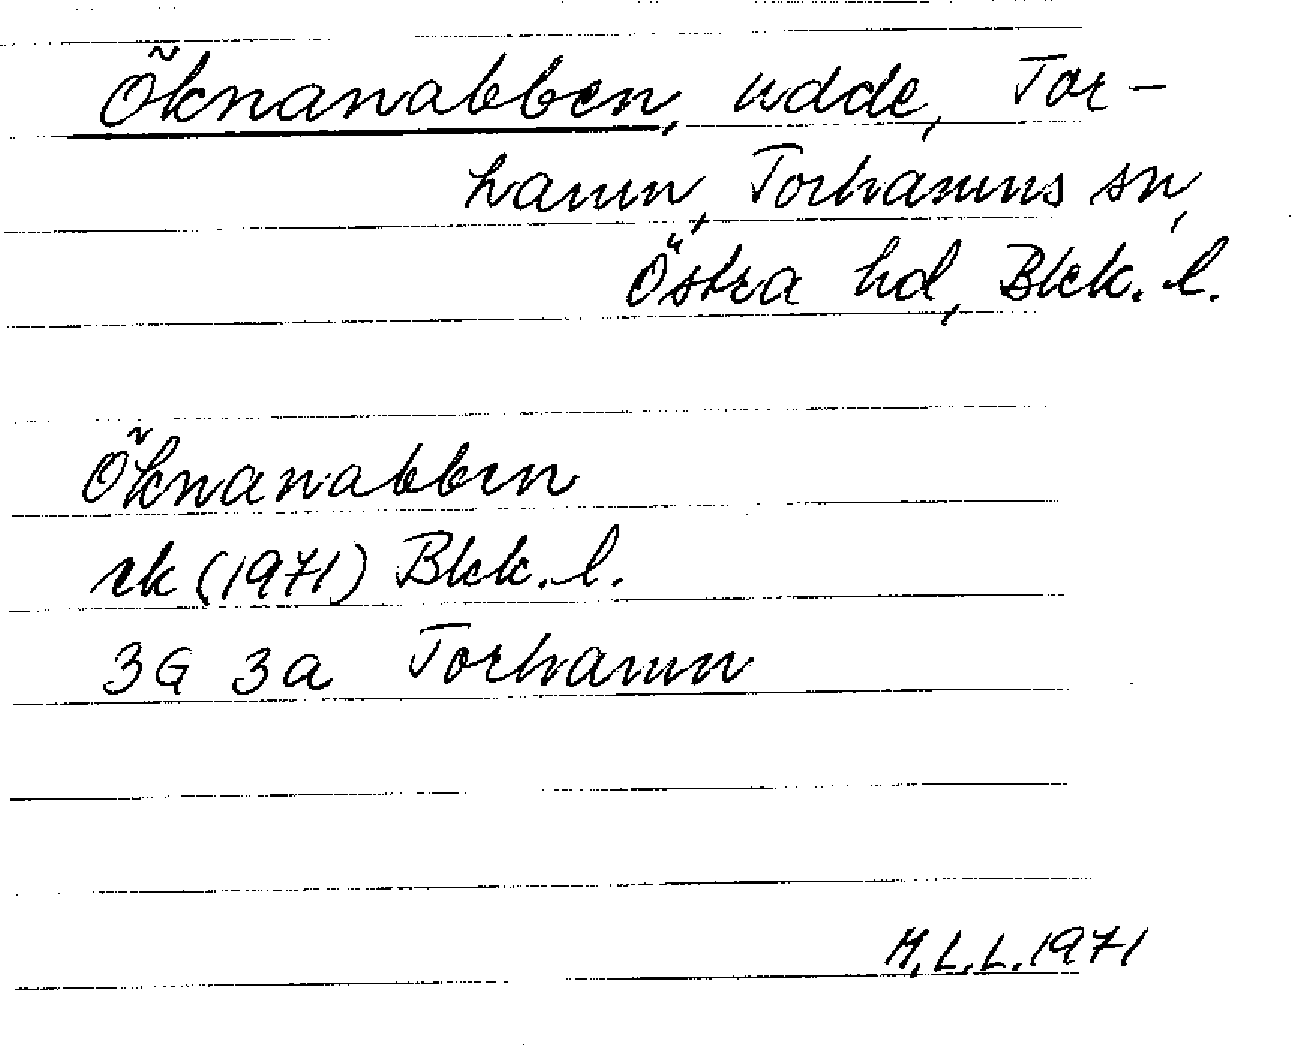 Öknanabben, udde, Tor-
hamn, Torhamns sn,
Östra hd, Blek. l.
Öknanabben
ek (1971) Blek. l.
3G 3a Torhamn
M.L.L. 1971